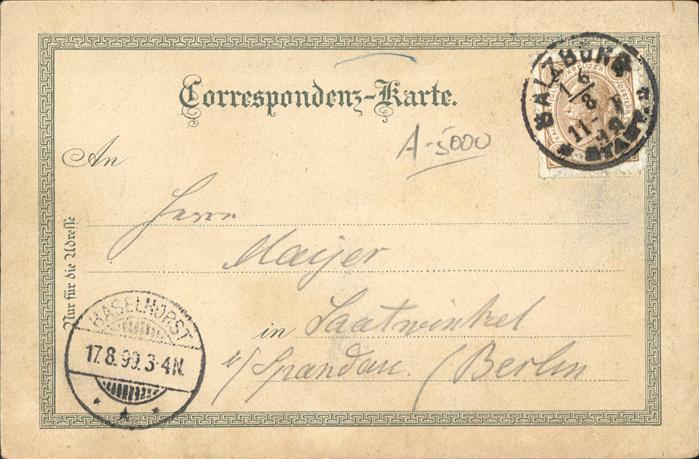 Correspondenz-Karte.
SALZBURG
16/8
11-
STADT
A-5000
An
Herrn
Maijer
in Saatwinkel
b/Spandau. /Berlin
Nur für die Adresse
HASELHORST
17.8.99.3-4N.